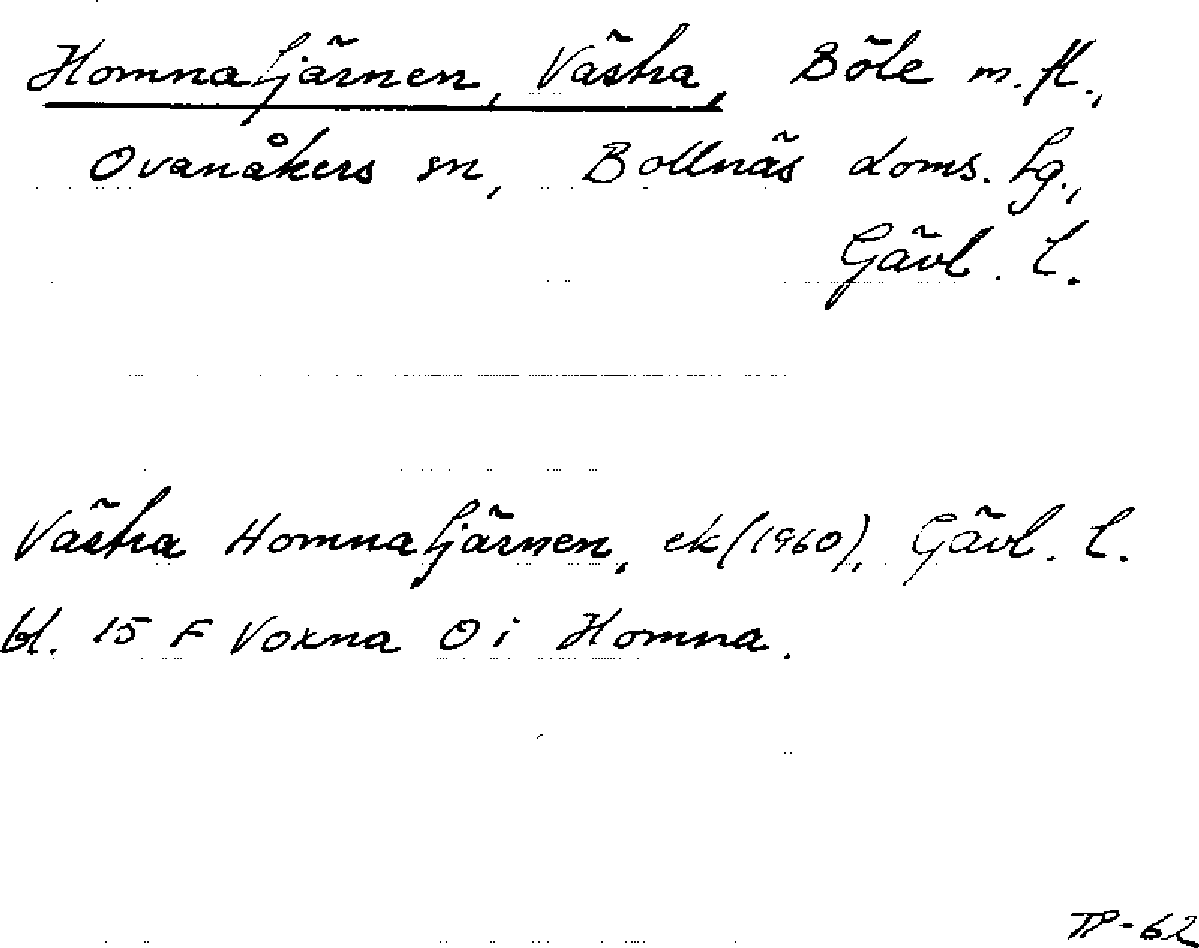 Homnatjärnen, Västra, Böle m.fl.,
Ovanåkers sn, Bollnäs doms. Lg.,
Gävl. l.
Västra Homnatjärnen, ek (1960), Gävl. l.
bl. 15 F Voxna O i Homna.
TP-62